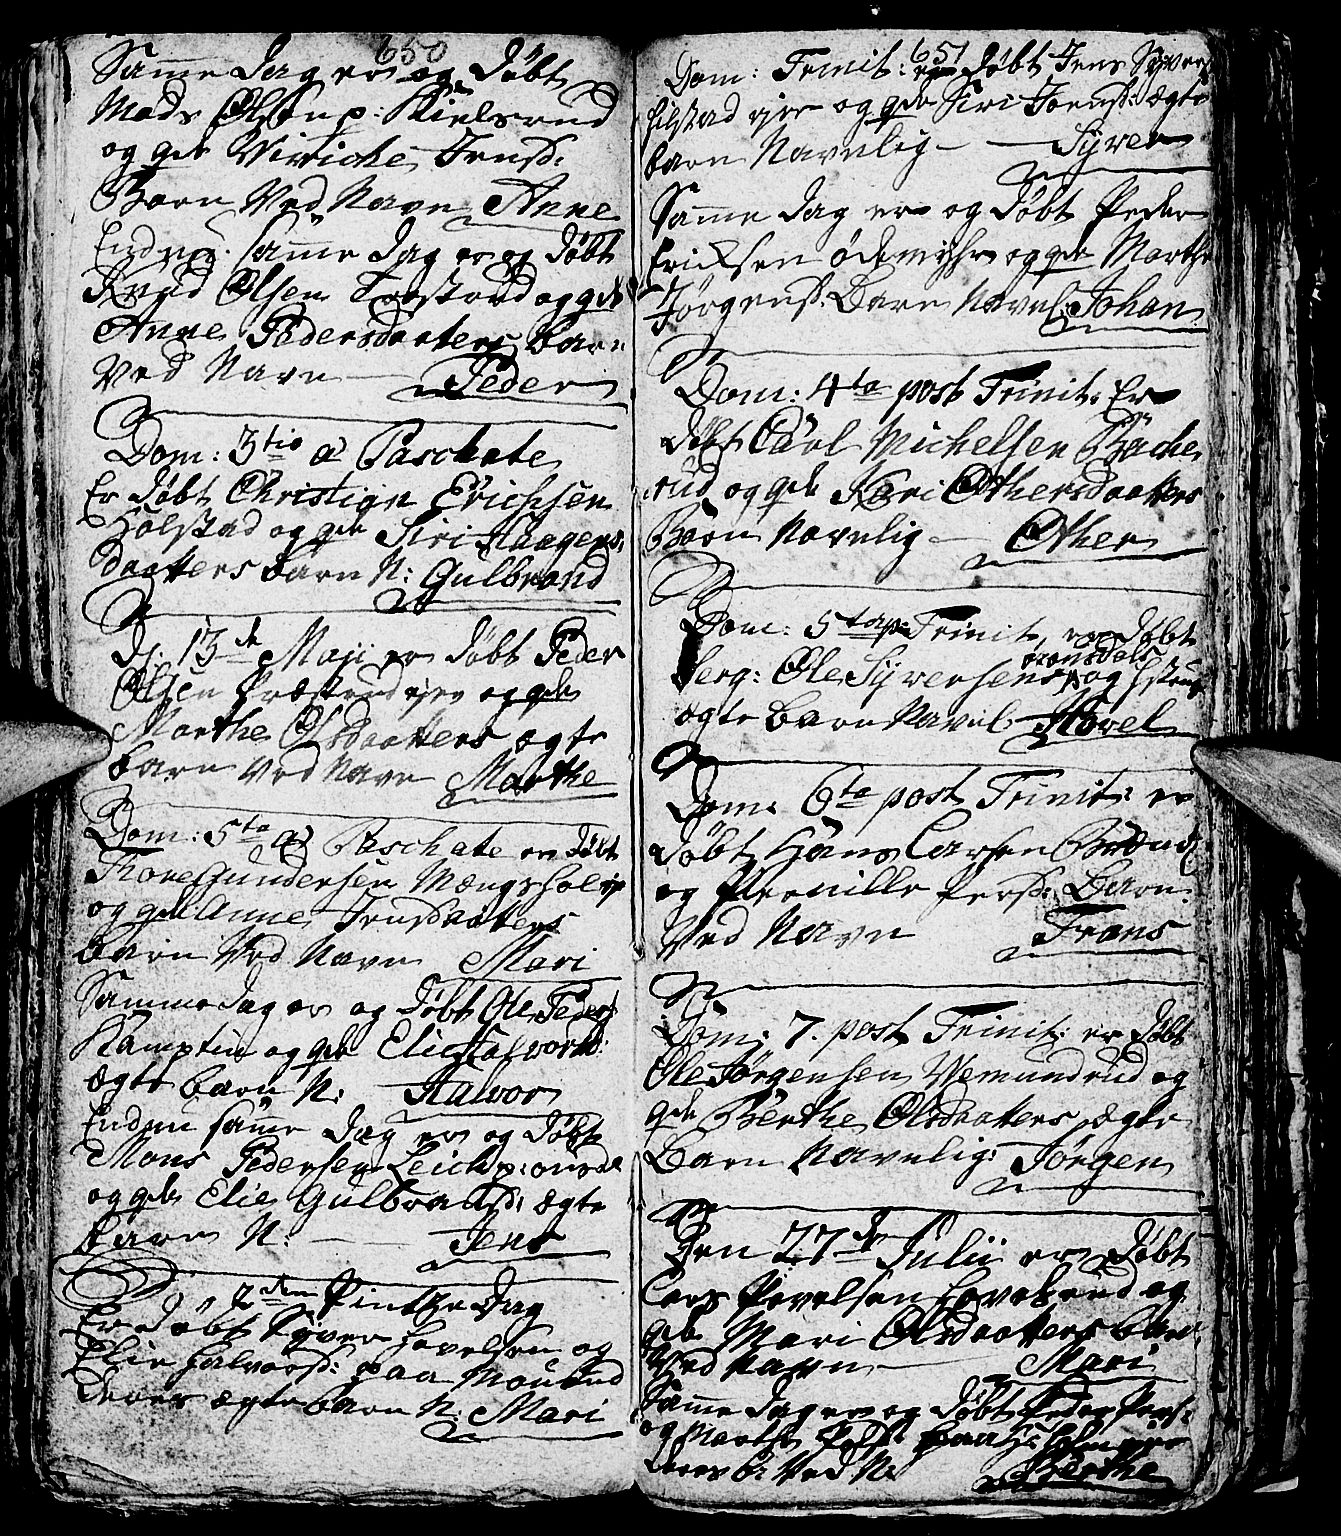 650
Samme dag er og døbt
Mads Olsen p: Kielsrud
og qde Wiviche Jensd:
Barn Ved Navn Anne
Endnu samme dag er og døbt
Knud Olsen og qde
Anne Pedersdaatters barn
Ved Navn Peder
Dom: 3tio a Paschate
Er døbt Christian Erichsen
Holstad og qde Siri Haagens
daatters barn N: Gulbrand
D. 13de Maji er døbt Peder
Olsen eier og qde
Marthe Olsdaatters ægte
barn Ved Navn Marthe
Dom: 5ta a Paschate er døbt
Tore Gundersen Mængshol
og qde Anne Jensdaatters
barn Ved Navn Mari
Samme dag er og døbt Ole Peders
Kampen og qde Elie Halvorsd:
ægte barn N: Halvor
Endnu samme dag er og døbt
Mons Pedersen
og qde Elie Gulbrandsd: ægte
barn N: Jens
2den Pintze Dag
Er døbt Syver Hovelsen og
Elie Halvorsd: paa
deres ægte barn N: Mari
651
Dom: Trinit: døbt Jens Syvers
eier og qde Siri Jensd: ægte
barn Navnlig Syver
Samme dag er og døbt Peder
Ericksen ødemyhr og qde Marthe
Jørgensd: Barn Navnl: Johan
Dom: 4ta post Trinit: Er
døbt Carl Michelsen Bache
rud og qde Kari Othersdaatters
Barn Navnlig Other
Dom: 5ta p: Trinit, var døbt
Serg: Ole Syversens og Hstrus
ægte barn Navnl: Hovel
Dom: 6ta post Trinit: er
døbt Hans Larsen
og Pernille Persd: Barn
Ved Navn Frans
Dom: 7. post Trinit: er døbt
Ole Jørgensen Wemundrud og
qde Berthe Olsdaatters ægte
Barn Navnlig: Jørgen
Den 27de Julii er døbt
Lars Povelsen og
qde Mari Olsdaatters barn
Ved Navn Mari
Samme dag er og døbt Peder Pers:
og Marthe paa
deres b: Ved N: Berthe